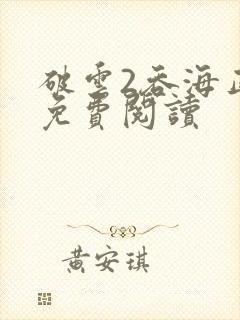 破雲2吞海
免費閱讀
黃安琪